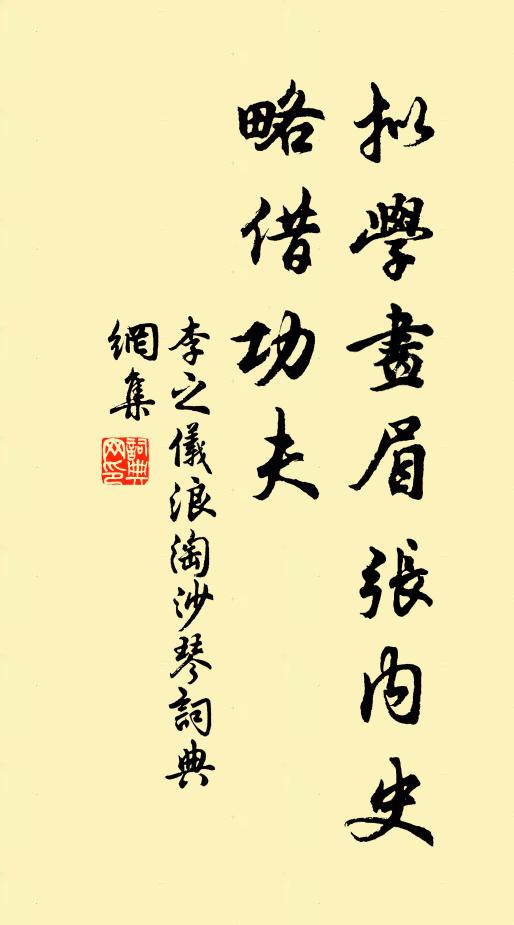 拟學畫眉張内史
略借功夫
李之儀浪淘沙琴詞典
網集
詞典网印